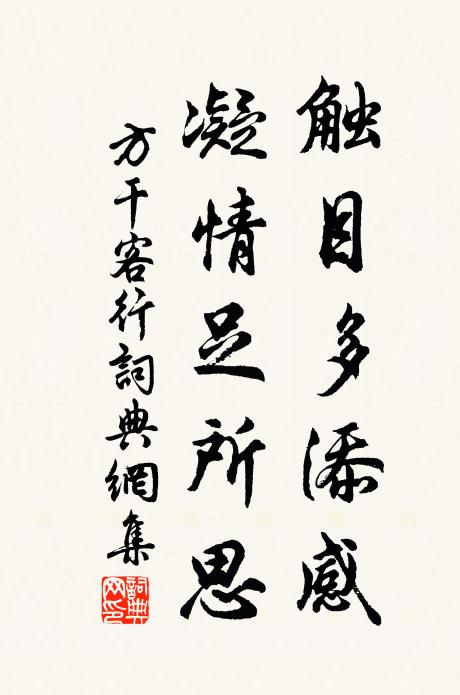 触目多添感
凝情足所思
方干客行詞典網集
詞典网印